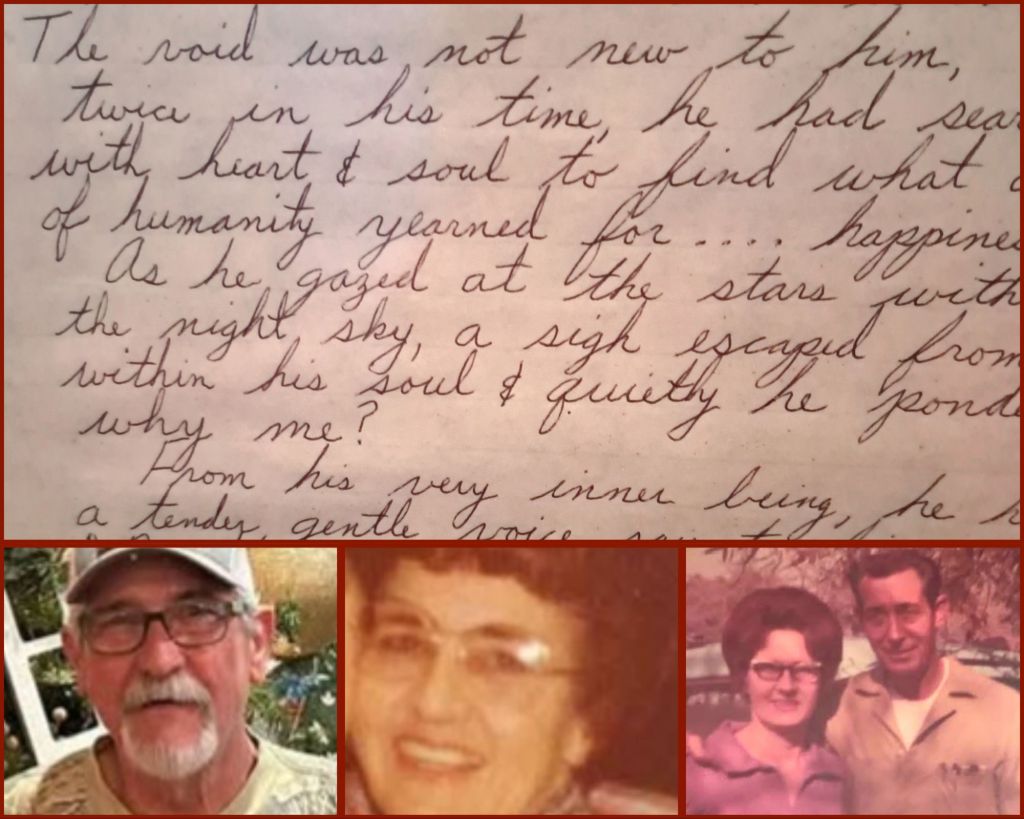 The void was not new to him,
twice in his time, he had
with heart & soul to find what
of humanity yearned for .... 
As he gazed at the stars with
the night sky, a sigh escaped from
within his soul & quietly he
why me?
From his very inner being, he
a tender, gentle voice